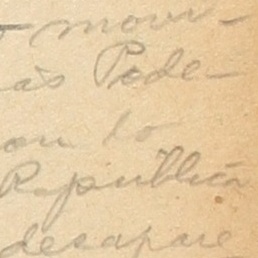 movi-
as Pode-
ou lo
Republica
desapare